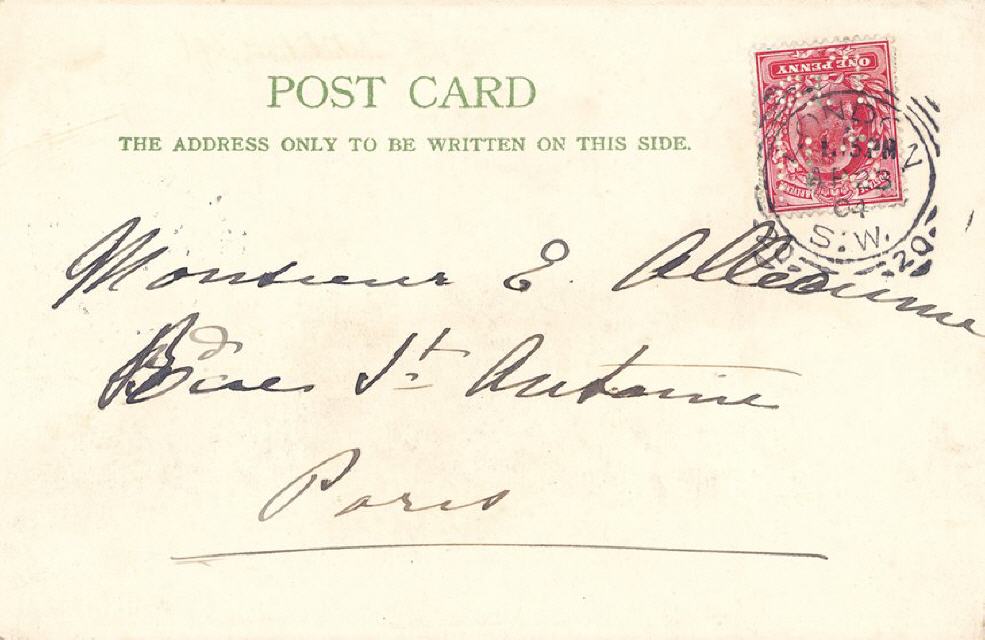 POST CARD
THE ADDRESS ONLY TO BE WRITTEN ON THIS SIDE.
ONE PENNY
LONDON
PM
23
04
S.W.
20 20
Monsieur E.
St Antoine
Paris